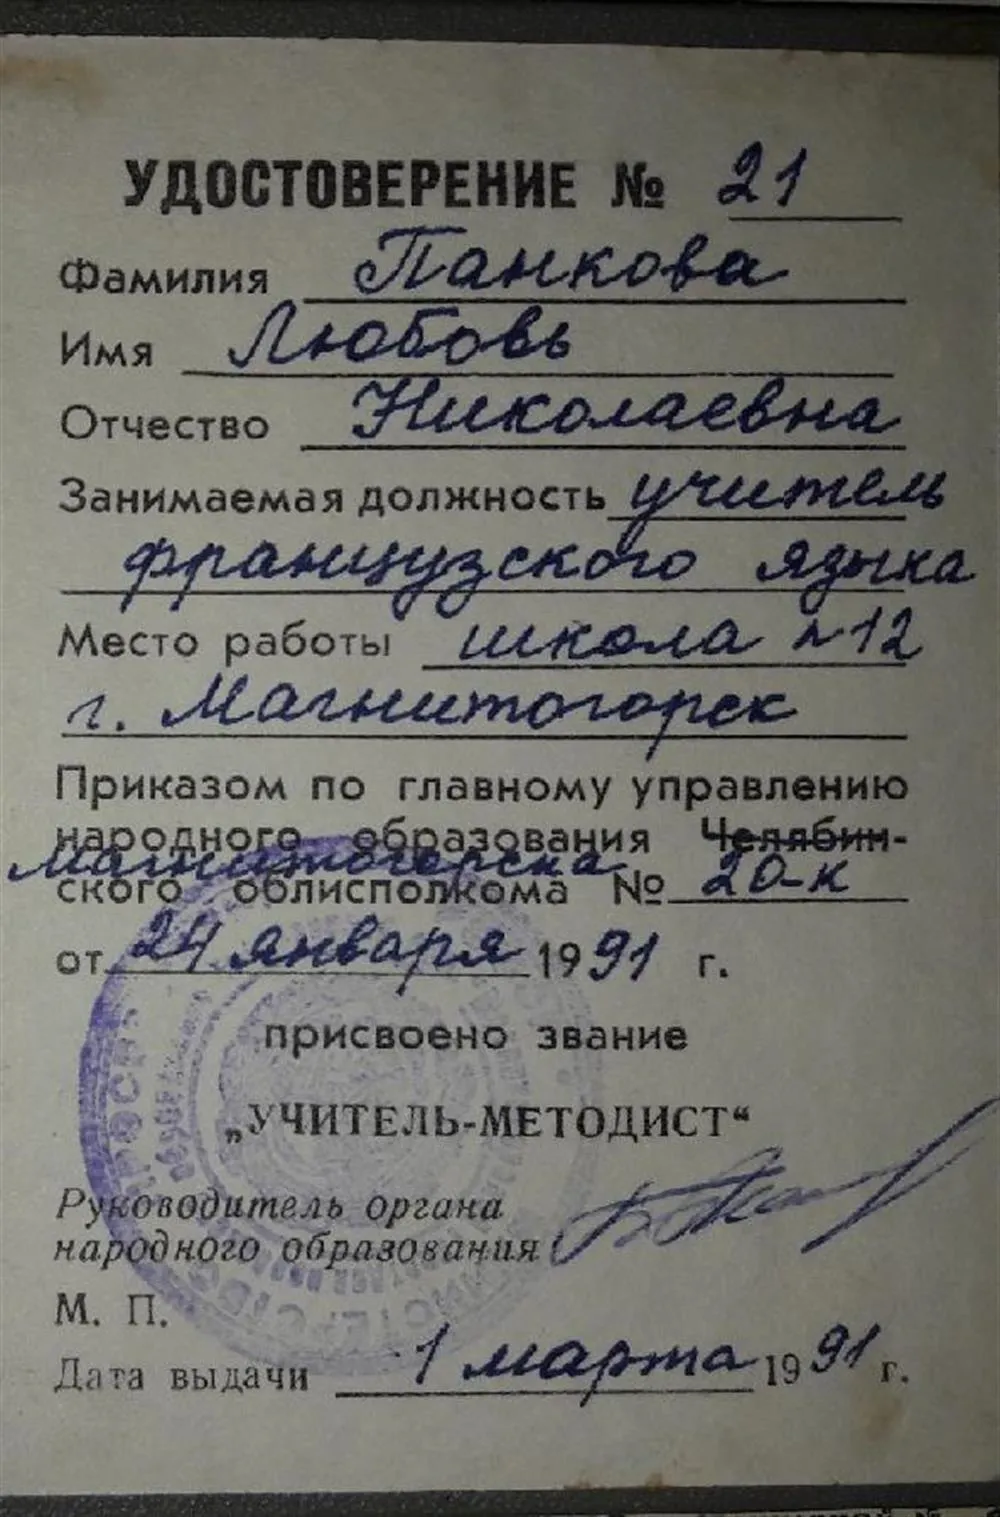 УДОСТОВЕРЕНИЕ № 21
Фамилия Панкова
Имя Любовь
Отчество Николаевна
Занимаемая должность учитель
французского языка
Место работы школа №12
г. Магнитогорск
Приказом по главному управлению
народного образования Челябин-
Магнитогорска
ского облисполкома № 20-к
от 24 января 1991 г.
присвоено звание
„УЧИТЕЛЬ-МЕТОДИСТ“
Руководитель органа
народного образования
М. П.
Дата выдачи 1 марта 1991 г.